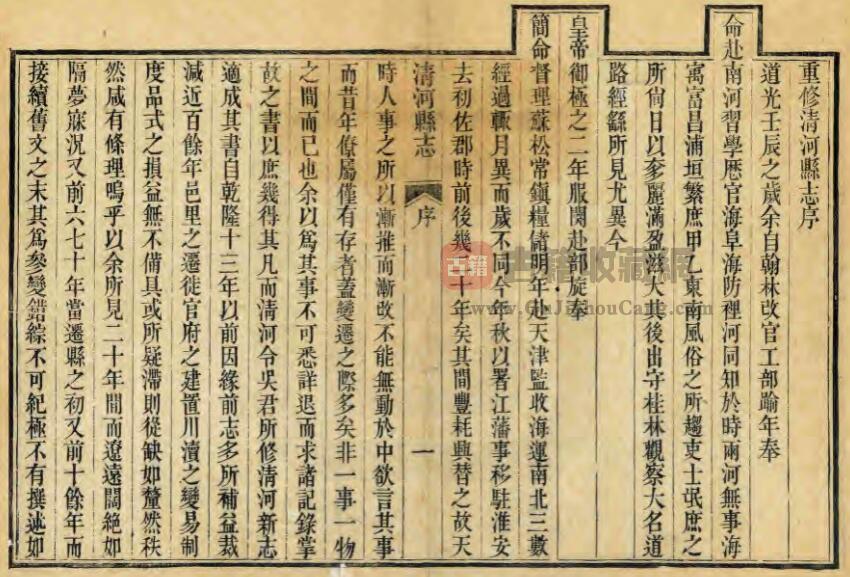 重修清河縣志序
道光壬辰之歲余自翰林改官工部踰年奉
命赴南河習學歷官海阜海防裡河同知於時兩河無事海
寓富昌浦垣繁庶甲乙東南風俗之所趨吏士氓庶之
所尙日以奓麗滿盈滋大其後出守桂林觀察大名道
路經繇所見尤異今
皇帝御極之二年服闋赴部旋奉
簡命督理蘇松常鎭糧儲明年赴天津監收海運南北三數
經過輒月異而歲不同今年秋以署江藩事移駐淮安
去初佐郡時前後幾二十年矣其間豐耗興替之故天
清河縣志 序 一
時人事之所以漸推而漸改不能無動於中欲言其事
而昔年僚屬僅有存者蓋變遷之際多矣非一事一物
之間而已也余以爲其事不可悉詳退而求諸記錄掌
故之書以庶幾得其凡而清河令吳君所修清河新志
適成其書自乾隆十三年以前因緣前志多所補益裁
減近百餘年邑里之遷徙官府之建置川瀆之變易制
度品式之損益無不備具或所疑滯則從缺如釐然秩
然咸有條理嗚乎以余所見二十年間而遼遠闊絶如
隔夢寐況又前六七十年當遷縣之初又前十餘年而
接續舊文之末其爲參變錯綜不可紀極不有撰述如
古籍
古籍收藏網
www.GuJiShouCang.com